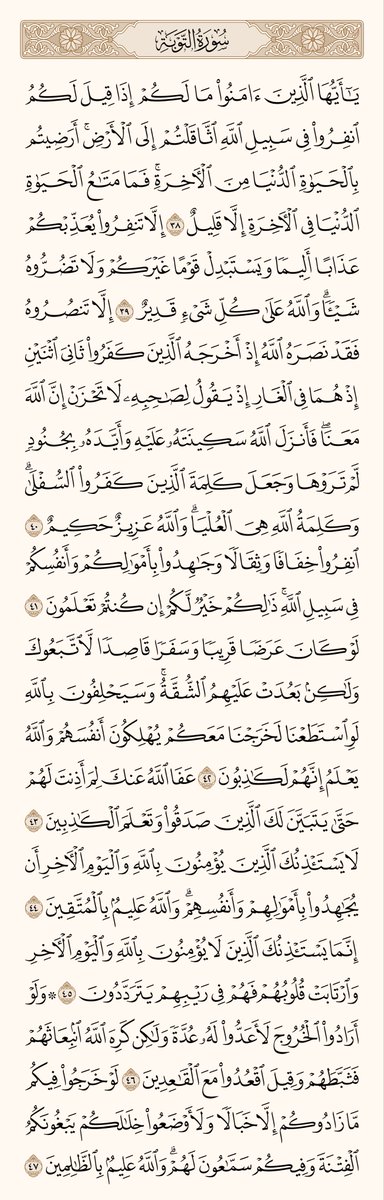 سُورَةُ التَّوْبَةِ
يَٰٓأَيُّهَا ٱلَّذِينَ ءَامَنُوا۟ مَا لَكُمْ إِذَا قِيلَ لَكُمُ
ٱنفِرُوا۟ فِى سَبِيلِ ٱللَّهِ ٱثَّاقَلْتُمْ إِلَى ٱلْأَرْضِ ۚ أَرَضِيتُم
بِٱلْحَيَوٰةِ ٱلدُّنْيَا مِنَ ٱلْءَاخِرَةِ ۚ فَمَا مَتَٰعُ ٱلْحَيَوٰةِ
ٱلدُّنْيَا فِى ٱلْءَاخِرَةِ إِلَّا قَلِيلٌ ٣٨ إِلَّا تَنفِرُوا۟ يُعَذِّبْكُمْ
عَذَابًا أَلِيمًا وَيَسْتَبْدِلْ قَوْمًا غَيْرَكُمْ وَلَا تَضُرُّوهُ
شَيْـًٔا ۗ وَٱللَّهُ عَلَىٰ كُلِّ شَىْءٍ قَدِيرٌ ٣٩ إِلَّا تَنصُرُوهُ
فَقَدْ نَصَرَهُ ٱللَّهُ إِذْ أَخْرَجَهُ ٱلَّذِينَ كَفَرُوا۟ ثَانِىَ ٱثْنَيْنِ
إِذْ هُمَا فِى ٱلْغَارِ إِذْ يَقُولُ لِصَٰحِبِهِۦ لَا تَحْزَنْ إِنَّ ٱللَّهَ
مَعَنَا ۖ فَأَنزَلَ ٱللَّهُ سَكِينَتَهُۥ عَلَيْهِ وَأَيَّدَهُۥ بِجُنُودٍ
لَّمْ تَرَوْهَا وَجَعَلَ كَلِمَةَ ٱلَّذِينَ كَفَرُوا۟ ٱلسُّفْلَىٰ ۗ
وَكَلِمَةُ ٱللَّهِ هِىَ ٱلْعُلْيَا ۗ وَٱللَّهُ عَزِيزٌ حَكِيمٌ ٤٠
ٱنفِرُوا۟ خِفَافًا وَثِقَالًا وَجَٰهِدُوا۟ بِأَمْوَٰلِكُمْ وَأَنفُسِكُمْ
فِى سَبِيلِ ٱللَّهِ ۚ ذَٰلِكُمْ خَيْرٌ لَّكُمْ إِن كُنتُمْ تَعْلَمُونَ ٤١
لَوْ كَانَ عَرَضًا قَرِيبًا وَسَفَرًا قَاصِدًا لَّٱتَّبَعُوكَ
وَلَٰكِنۢ بَعُدَتْ عَلَيْهِمُ ٱلشُّقَّةُ ۚ وَسَيَحْلِفُونَ بِٱللَّهِ
لَوِ ٱسْتَطَعْنَا لَخَرَجْنَا مَعَكُمْ يُهْلِكُونَ أَنفُسَهُمْ وَٱللَّهُ
يَعْلَمُ إِنَّهُمْ لَكَٰذِبُونَ ٤٢ عَفَا ٱللَّهُ عَنكَ لِمَ أَذِنتَ لَهُمْ
حَتَّىٰ يَتَبَيَّنَ لَكَ ٱلَّذِينَ صَدَقُوا۟ وَتَعْلَمَ ٱلْكَٰذِبِينَ ٤٣
لَا يَسْتَـْٔذِنُكَ ٱلَّذِينَ يُؤْمِنُونَ بِٱللَّهِ وَٱلْيَوْمِ ٱلْءَاخِرِ أَن
يُجَٰهِدُوا۟ بِأَمْوَٰلِهِمْ وَأَنفُسِهِمْ ۗ وَٱللَّهُ عَلِيمٌۢ بِٱلْمُتَّقِينَ ٤٤
إِنَّمَا يَسْتَـْٔذِنُكَ ٱلَّذِينَ لَا يُؤْمِنُونَ بِٱللَّهِ وَٱلْيَوْمِ ٱلْءَاخِرِ
وَٱرْتَابَتْ قُلُوبُهُمْ فَهُمْ فِى رَيْبِهِمْ يَتَرَدَّدُونَ ٤٥ ۞ وَلَوْ
أَرَادُوا۟ ٱلْخُرُوجَ لَأَعَدُّوا۟ لَهُۥ عُدَّةً وَلَٰكِن كَرِهَ ٱللَّهُ ٱنۢبِعَاثَهُمْ
فَثَبَّطَهُمْ وَقِيلَ ٱقْعُدُوا۟ مَعَ ٱلْقَٰعِدِينَ ٤٦ لَوْ خَرَجُوا۟ فِيكُم
مَّا زَادُوكُمْ إِلَّا خَبَالًا وَلَأَوْضَعُوا۟ خِلَٰلَكُمْ يَبْغُونَكُمُ
ٱلْفِتْنَةَ وَفِيكُمْ سَمَّٰعُونَ لَهُمْ ۗ وَٱللَّهُ عَلِيمٌۢ بِٱلظَّٰلِمِينَ ٤٧